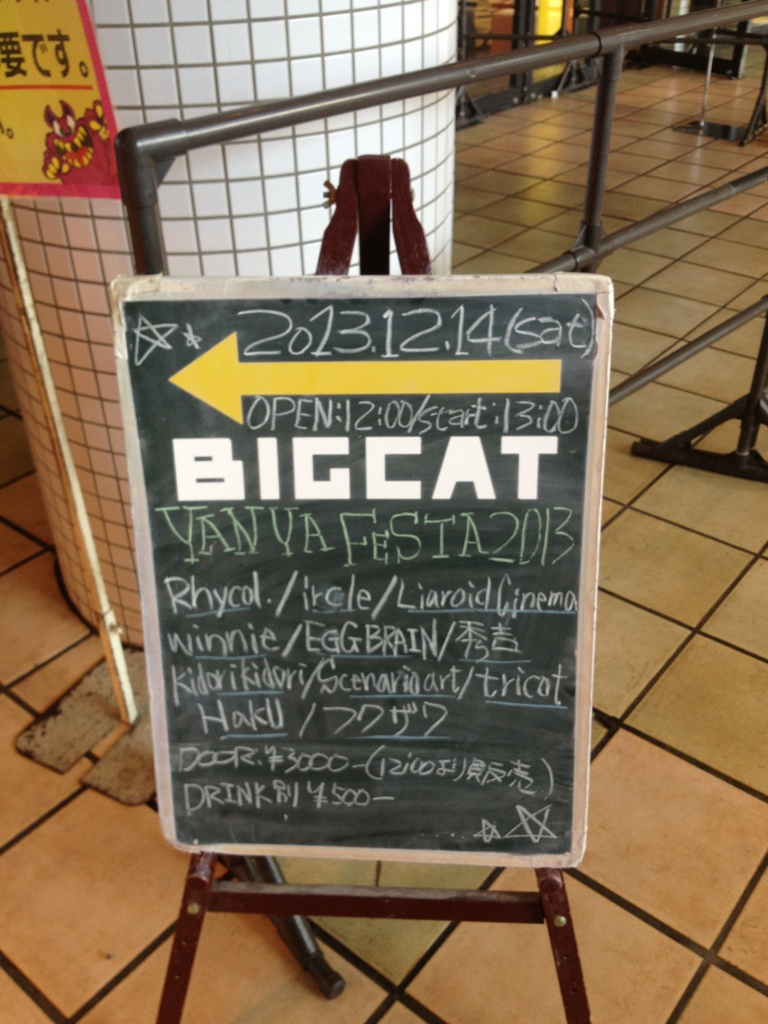 要です。
2013.12.14(sat)
OPEN:12:00/start:13:00
BIGCAT
YANYA FESTA2013
Rhycol./ircle/Liaroid Cinema
winnie/EGG BRAIN/秀吉
kidori kidori/Scenario art/tricot
Haku/フクザワ
DOOR:¥3000-(12:00より販売)
DRINK別¥500-